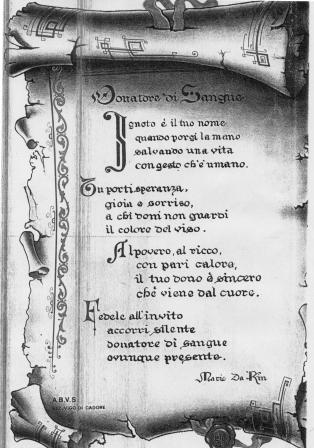 Donatore di Sangue
Ignoto è il tuo nome
quando porgi la mano
salvando una vita
con gesto ch'è umano.
Tu porti speranza,
gioia e sorriso,
a chi doni non guardi
il colore del viso.
Al povero, al ricco,
con pari calore,
il tuo dono è sincero
chè viene dal cuore.
Fedele all'invito
accorri silente
donatore di sangue
ovunque presente.
Mario Da Rin
A.B.V.S.
SEZ. VIGO DI CADORE